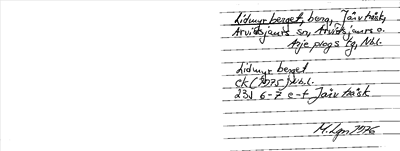 Lidmyrberget, berg, Järvträsk,
Arvidsjaurs sn, Arvidsjaurs o.
Arjeplogs tg, Nbl.
Lidmyrberget
CK (1975) Nbl.
23J 6-7 e-f Järvträsk
1976